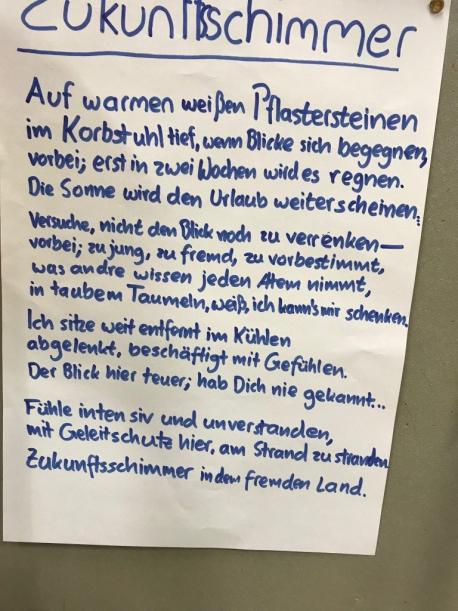 Zukunftsschimmer
Auf warmen weißen Pflastersteinen
im Korbstuhl tief, wenn Blicke sich begegnen,
vorbei; erst in zwei Wochen wird es regnen.
Die Sonne wird den Urlaub weiterscheinen:
Versuche, nicht den Blick noch zu verrenken—
vorbei; zu jung, zu fremd, zu vorbestimmt,
was andre wissen jeden Atem nimmt,
in taubem Taumeln, weiß, ich kann's mir schenken.
Ich sitze weit entfernt im Kühlen
abgelenkt, beschäftigt mit Gefühlen.
Der Blick hier teuer; hab Dich nie gekannt...
Fühle intensiv und unverstanden,
mit Geleitschutz hier, am Strand zu stranden
Zukunftsschimmer in dem fremden Land.